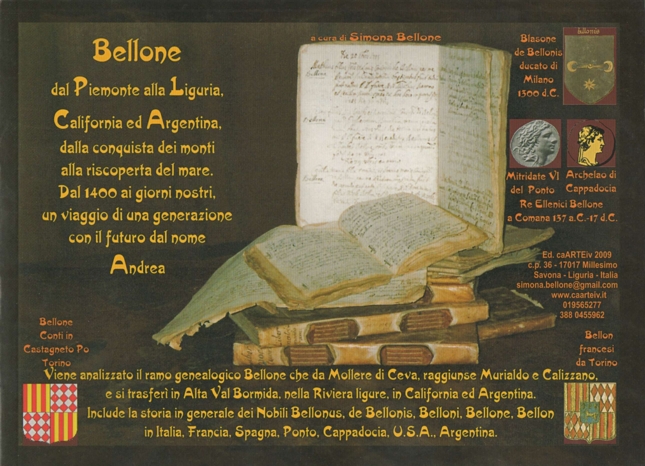 a cura di Simona Bellone
Bellone
dal Piemonte alla Liguria,
California ed Argentina,
dalla conquista dei monti
alla riscoperta del mare.
Dal 1400 ai giorni nostri,
un viaggio di una generazione
con il futuro dal nome
Andrea
Blasone
de Bellonis
ducato di
Milano
1500 d.C.
Mitridate VI
del Ponto
Archelao di
Cappadocia
Re Ellenici Bellone
a Comana 137 a.C.-17 d.C.
Ed. caARTEiv 2009
c.p. 36 - 17017 Millesimo
Savona - Liguria - Italia
simona.bellone@gmail.com
www.caarteiv.it
019565277
388 0455962
Bellone
Conti in
Castagneto Po
Torino
Bellon
francesi
da Torino
Viene analizzato il ramo genealogico Bellone che da Mollere di Ceva, raggiunse Murialdo e Calizzano,
e si trasferì in Alta Val Bormida, nella Riviera ligure, in California ed Argentina.
Include la storia in generale dei Nobili Bellonus, de Bellonis, Belloni, Bellone, Bellon
in Italia, Francia, Spagna, Ponto, Cappadocia, U.S.A., Argentina.